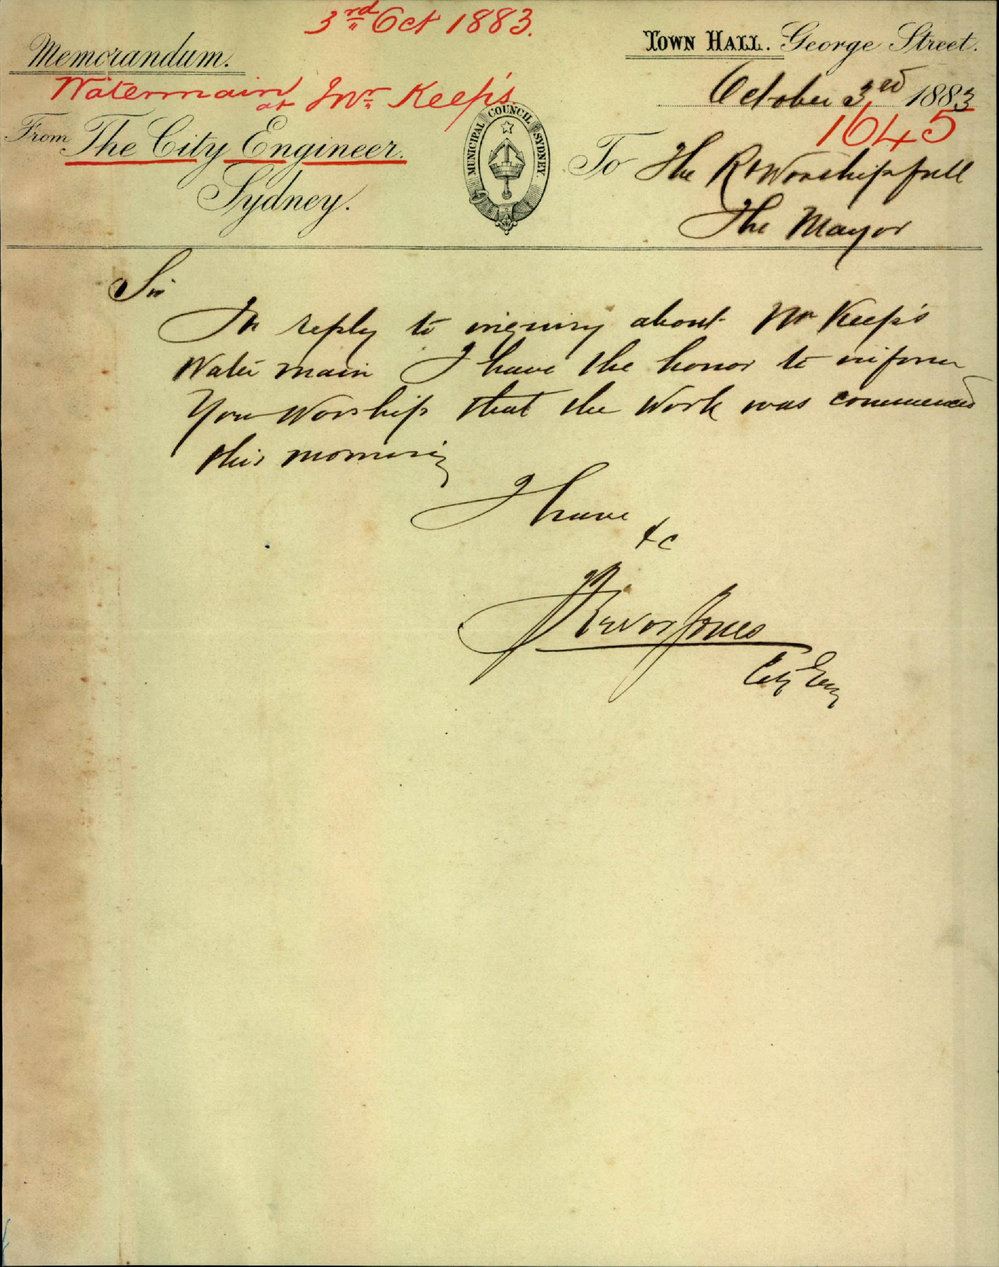 3rd Oct 1883.
Memorandum.
Town Hall. George Street.
Watermain
at Mr Keep's
October 3rd 1883
1645
From The City Engineer.
Sydney.
MUNICIPAL COUNCIL SYDNEY.
To The Rt Worshipfull
The Mayor
Sir
In reply to inquiry about Mr Keep's
Water main I have the honor to inform
Your Worship that the Work was commenced
this morning
I have
&c
Trevor Jones
City Eng